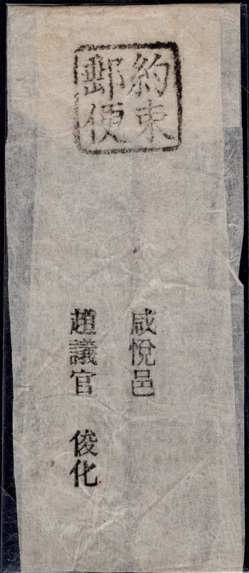 約束
郵便
咸悅邑
趙議官 俊化